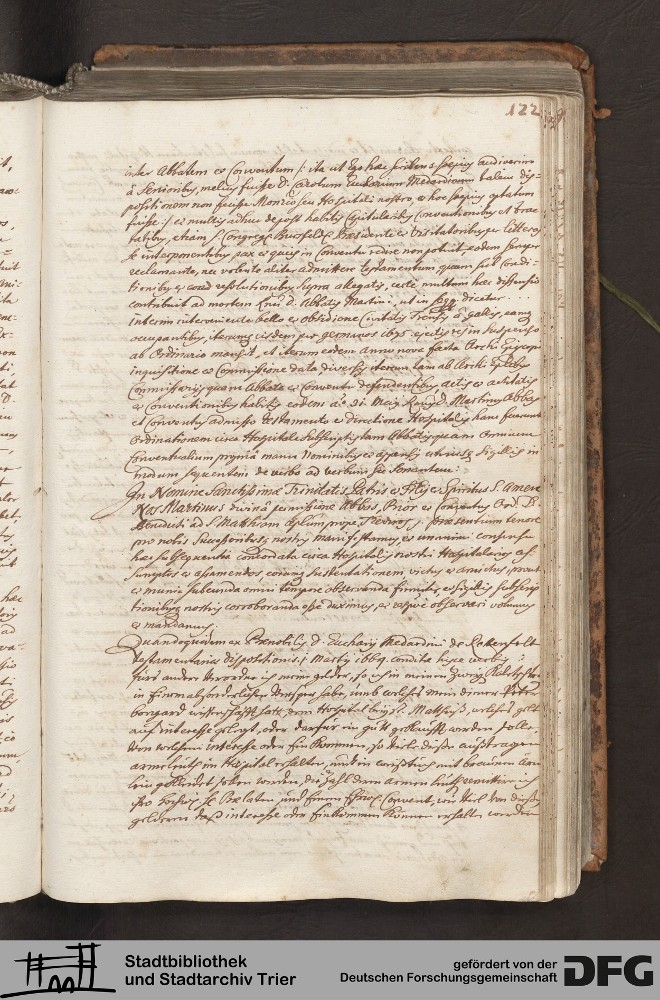 122
inter Abbatem et Conventum /: ita ut Ego haec scribens saepius audiverim
à Senioribus, melius fuisse D. Carolum Eucharium Medardinum talem dis-
positionem non fecisse Monrio seu Hospitali nostro, et hoc saepius optatum
fuisse :/ et multis adhuc de post habitis Capitularibus Conventionibus et trac-
tatibus, etiam S. Congregis Bursfeldis Praesidente et Visitatoribus per litteras
se interponentibus pax et quies in Conventu redire non potuit, eodem semper
reclamante, nec volente aliter admittere testamentum quam sub condi-
tionibus et resolutionibus supra allegatis, certe multum haec dissensio
contribuit ad mortem D. Abbatis Martini, ut in dicetur.
interim interveniente bello et obsidione Civitatis à Gallis, eamque
occupantibus, iterumque eisdem per germanos eiectis res in suspenso
ab Ordinario mansit, et iterum eodem anno nova facta Archi Episcopi
inquisitione et Commissione data diversis iterum tam ab Archi
Commissariis quam Abbate et Conventu defendentibus actis et actitatis
et Conventionibus habitis eodem Martinus Abbas
et Conventus admisso testamento et directione Hospitalis hanc fecerunt
Ordinationem circa Hospitale subscriptis tam Abbatis quam omnium
Conventualium propria manu Nominibus et appensis utriusque Sigillis in
modum sequentem de verbo ad verbum se tenentem:
In Nomine Sanctissimae Trinitatis Patris et Filii et Spiritus S. amen
Nos Martinus divinâ permissione Abbas, Prior et Conventus Ord. D.
Benedicti ad S. Matthiam Aplum prope Treviros, praesentium tenore
pro nobis Successoribus nostris manifestamus, et unanimi consensu
haec subsequentia concordata circa Hospitalis nostri Hospitalarios as-
sumptos et assumendos, eorumque sustentationem victus et amictus prout
et munia subeunda omni tempore observanda firmiter, et sigillis subscrip-
tionibusque nostris corroboranda esse duximus, et observari volumus
et mandamus.
Quandoquidem ex D. Eucharii Medardini de Rettenfelt
testamentariae dispositionis Martii 1669 condita hisce verbis:
fürs ander verorder ich mein gelder, so ich in meinem
in haab, umb welches mein diener Peter
bongard wissenschafft hatt, dem Hospital bey St. Mattheiß, welches gelt
auf interesse gelegt, oder darfür ein gutt gekaufft werden solle,
von welchem interesse oder Einkommen, so viel dieße außtragen
arme leuth im Hospital erhalten, und in weißtuch mit braunen
gekleidet sollen werden, die Zahl deren armen leuth remittire ich
ihro Praelaten und Convent, wie viel von dießen
gelderen daß interesse oder Einkommen können erhalten werden
Stadtbibliothek
und Stadtarchiv Trier
gefördert von der
Deutschen Forschungsgemeinschaft
DFG